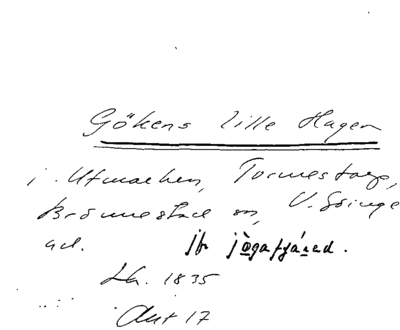 Gökens lille Hagen
i Utmarken, Tormestorp,
Brönnestad sn, V. Göinge
hd. jfr jögafjäred.
Lh. 1835
Akt 17